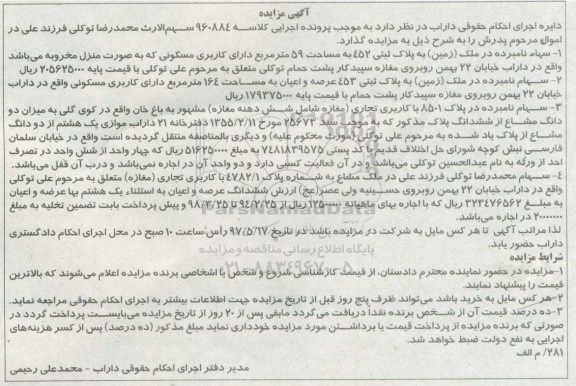 آگهی مزایده
دایره اجرای احکام حقوقی داراب در نظر دارد به موجب پرونده اجرایی کلاسه ۹۶۰۸۸۴ سهم‌الارث محمدرضا توکلی فرزند علی در
اموال مرحوم پدرش را به شرح ذیل به مزایده گذارد.
۱- سهام نامبرده در ملک (زمین) به پلاک ثبتی ۴۵۲ به مساحت ۵۹ مترمربع دارای کاربری مسکونی که به صورت منزل مخروبه می‌باشد
واقع در داراب خیابان ۲۲ بهمن روبروی مغازه سپیدکار پشت حمام توکلی متعلق به مرحوم علی توکلی با قیمت پایه ۲۰۵۶۲۵۰۰۰ ریال
۲- سهام نامبرده در ملک (زمین) به پلاک ثبتی ۴۵۳ عرصه و اعیان به مساحت ۱۶۴ مترمربع دارای کاربری مسکونی واقع در داراب
خیابان ۲۲ بهمن روبروی مغازه سپیدکار پشت حمام با قیمت پایه ۱۷۹۳۷۵۰۰۰ ریال
۳- سهام نامبرده در پلاک ۸۵۰۱ با کاربری تجاری (مغازه شامل شش دهنه مغازه) مشهور به باغ خان واقع در کوی گلی به میزان دو
دانگ مشاع از ششدانگ پلاک مذکور که به شماره ۲۵۶۷۳ مورخ ۱۳۵۵/۲/۱۱ دفترخانه ۲۱ داراب موازی یک هشتم از دو دانگ
مشاع از پلاک یاد شده به مرحوم علی توکلی (مورث محکوم علیه) و دیگری بالمناصفه منتقل گردیده است واقع در خیابان سلمان
فارسی نبش کوچه شورای حل اختلاف قدیم با کد پستی ۷۴۸۱۸۳۹۵۷۵ به مبلغ ۵۱۶۲۵۰۰۰۰ ریال که چهار واحد از شش واحد در تصرف
احد از ورثه به نام عبدالحسین توکلی می‌باشد و در آن فعالیت کسبی دارد و دو واحد آن در اجاره نمی‌باشد و درب آن قفل می‌باشد.
۴- سهام محمدرضا توکلی فرزند علی در ملک مشاع به شماره پلاک ۴۷۸۲/۱ با کاربری تجاری (مغازه) متعلق به مرحوم علی توکلی
واقع در داراب خیابان ۲۲ بهمن روبروی حسینیه ولی عصر(عج) ارزش ششدانگ عرصه و اعیان به استثناء یک هشتم بها عرصه و اعیان
به مبلغ ۳۲۳۴۷۶۵۶۲ ریال که با اجاره بهای ماهیانه ۱۲۵۰۰۰۰ ریال از ۹۴/۲/۲۵ تا ۹۸/۳/۲۵ و پیش پرداخت بابت تضمین تخلیه به مبلغ
۲۰۰۰۰۰۰۰ در اجاره می‌باشد.
لذا مراتب آگهی تا هر کس مایل به شرکت در مزایده باشد در تاریخ ۹۷/۵/۱۷ رأس ساعت ۱۰ صبح در محل اجرای احکام دادگستری
داراب حضور یابد.
شرایط مزایده
۱-مزایده در حضور نماینده محترم دادستان، از قیمت کارشناسی شروع و شخص یا اشخاصی برنده مزایده اعلام می‌شوند که بالاترین
قیمت را پیشنهاد نمایند.
۲-هر کس مایل به خرید باشد می‌تواند ظرف پنج روز قبل از تاریخ مزایده جهت اطلاعات بیشتر به اجرای احکام حقوقی مراجعه نماید.
۳-ده درصد قیمت آن از شخص برنده نقدا دریافت می‌گردد مابقی پس از ۲۰ روز از تاریخ مزایده می‌بایست پرداخت گردد در
صورتی که برنده مزایده از پرداخت قیمت یا برداشتن مورد مزایده خودداری نماید مبلغ مذکور (ده درصد) پس از کسر هزینه‌های
اجرایی به نفع دولت ضبط خواهد شد.
۲۸۱/ م الف
مدیر دفتر اجرای احکام حقوقی داراب - محمدعلی رحیمی
ParsNamadData
پایگاه اطلاع رسانی مناقصه و مزایده
۰۲۱-۸۸۳۴۹۶۷۰-۵